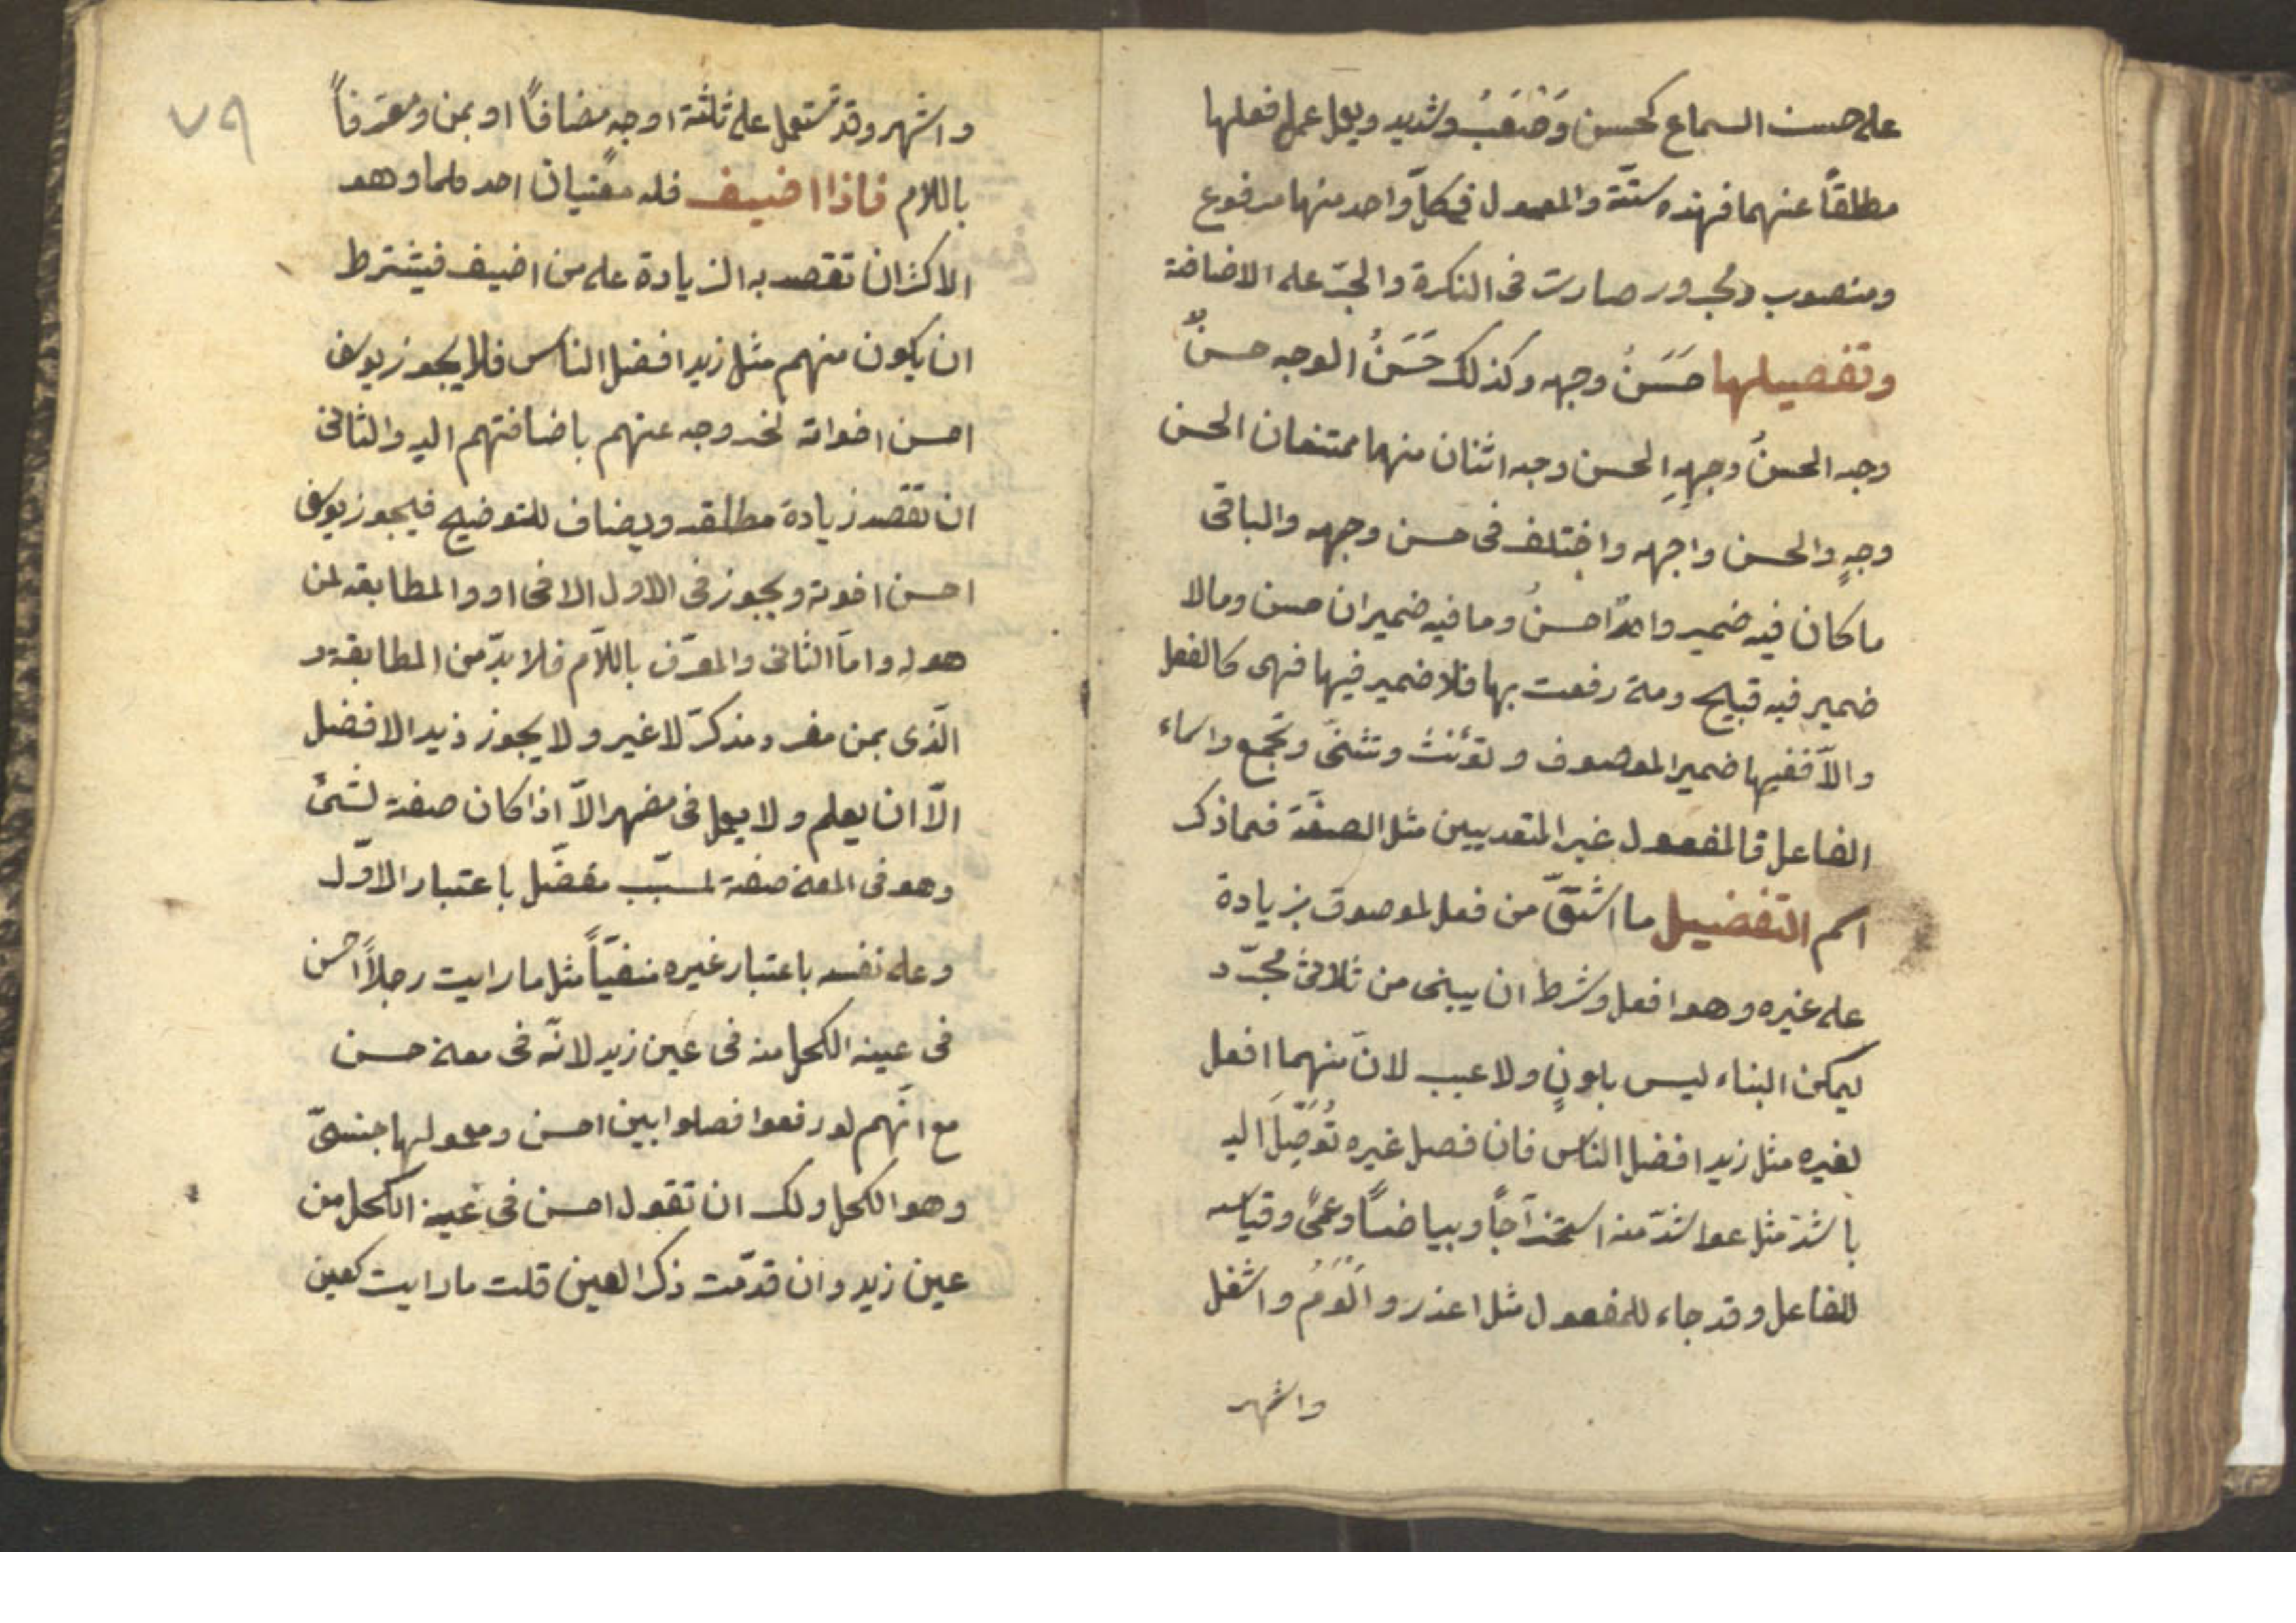 على حسب السماع كحسن وَصَعَبُ وشديد ويعمل عمل فعلها
مطلقاً عنهما فهذه ستّة والمعمول فى كلّ واحد منهما مرفوع
ومنصوب ومجرور صارت فى النكرة والجرّ على الاضافة
وتفصيلها حَسَنُ وجهه وكذلك حَسَنُ الوجه حسنٌ
وجه الحسنُ وجهِهِ الحسن وجه اثنان منهما ممتنعان الحسن
وجهٍ والحسن واجهه واختلف فى حسن وجهه والباقى
ما كان فيه ضمير واحدٌ احسنُ وما فيه ضميران حسن ومالا
ضمير فيه قبيح ومتى رفعت بها فلا ضمير فيها فهى كالفعل
والاّ ففيها ضمير الموصوف وتؤنث وتثنىّ وتجمع واسماء
الفاعل فالمفعول غير المتعديين مثل الصفة فيما ذكر
اسم التفضيل ما اشتقّ من فعل لموصوف بزيادة
على غيره وهو افعل وشرط ان يبنى من ثلاثى مجرّد
ليمكن البناء ليس بلونٍ ولا عيب لانّ منهما افعل
لغيره مثل زيد افضل الناس فان فصل غيره تُوَصِّلَ اليه
باشدّ مثل هو اشدّ منه استخراجاً وبياضاً وعمىً وقياسه
للفاعل وقد جاء للمفعول مثل اعذر وَاَلْوَمُ واشغل
واشهر
٧٩
واشهر وقد تستعمل على ثلثة اوجه مضافاً او بمن ومعرّفاً
باللام فاذا اضيف فله معنيان احدهما وهو
الاكثر ان تقصد به الزيادة على من اضيف فيشترط
ان يكون منهم مثل زيد افضل الناس فلا يجوز يوسف
احسن اخواته لخروجه عنهم باضافتهم اليه والثانى
ان تقصد زيادة مطلقه ويضاف للتوضيح فيجوز يوسف
احسن اخوته ويجوز فى الاول الافراد والمطابقه لمن
هو له وامّا الثانى والمعرّف باللاّم فلا بدّ من المطابقة و
الّذى بمن مفرد مذكرّ لا غير ولا يجوز زيد الافضل
الاّ ان يعلم ولا يعمل فى مضهر الاّ اذا كان صفة لشئ
وهو فى المعنى صفة لمسبّب مفضّل باعتبار الاوّل
وعلى نفسه باعتبار غيره منفيّاً مثل ما رايت رجلاً احسن
فى عينه الكحل منه فى عين زيد لانّه فى معنى حسن
مع انّهم لو رفعوا فصلوا بين احسن ومعمولها جنبىّ
وهو الكحل ولك ان تقول احسن فى عينه الكحل من
عين زيد وان قدّمت ذكر العين قلت ما رايت كعين